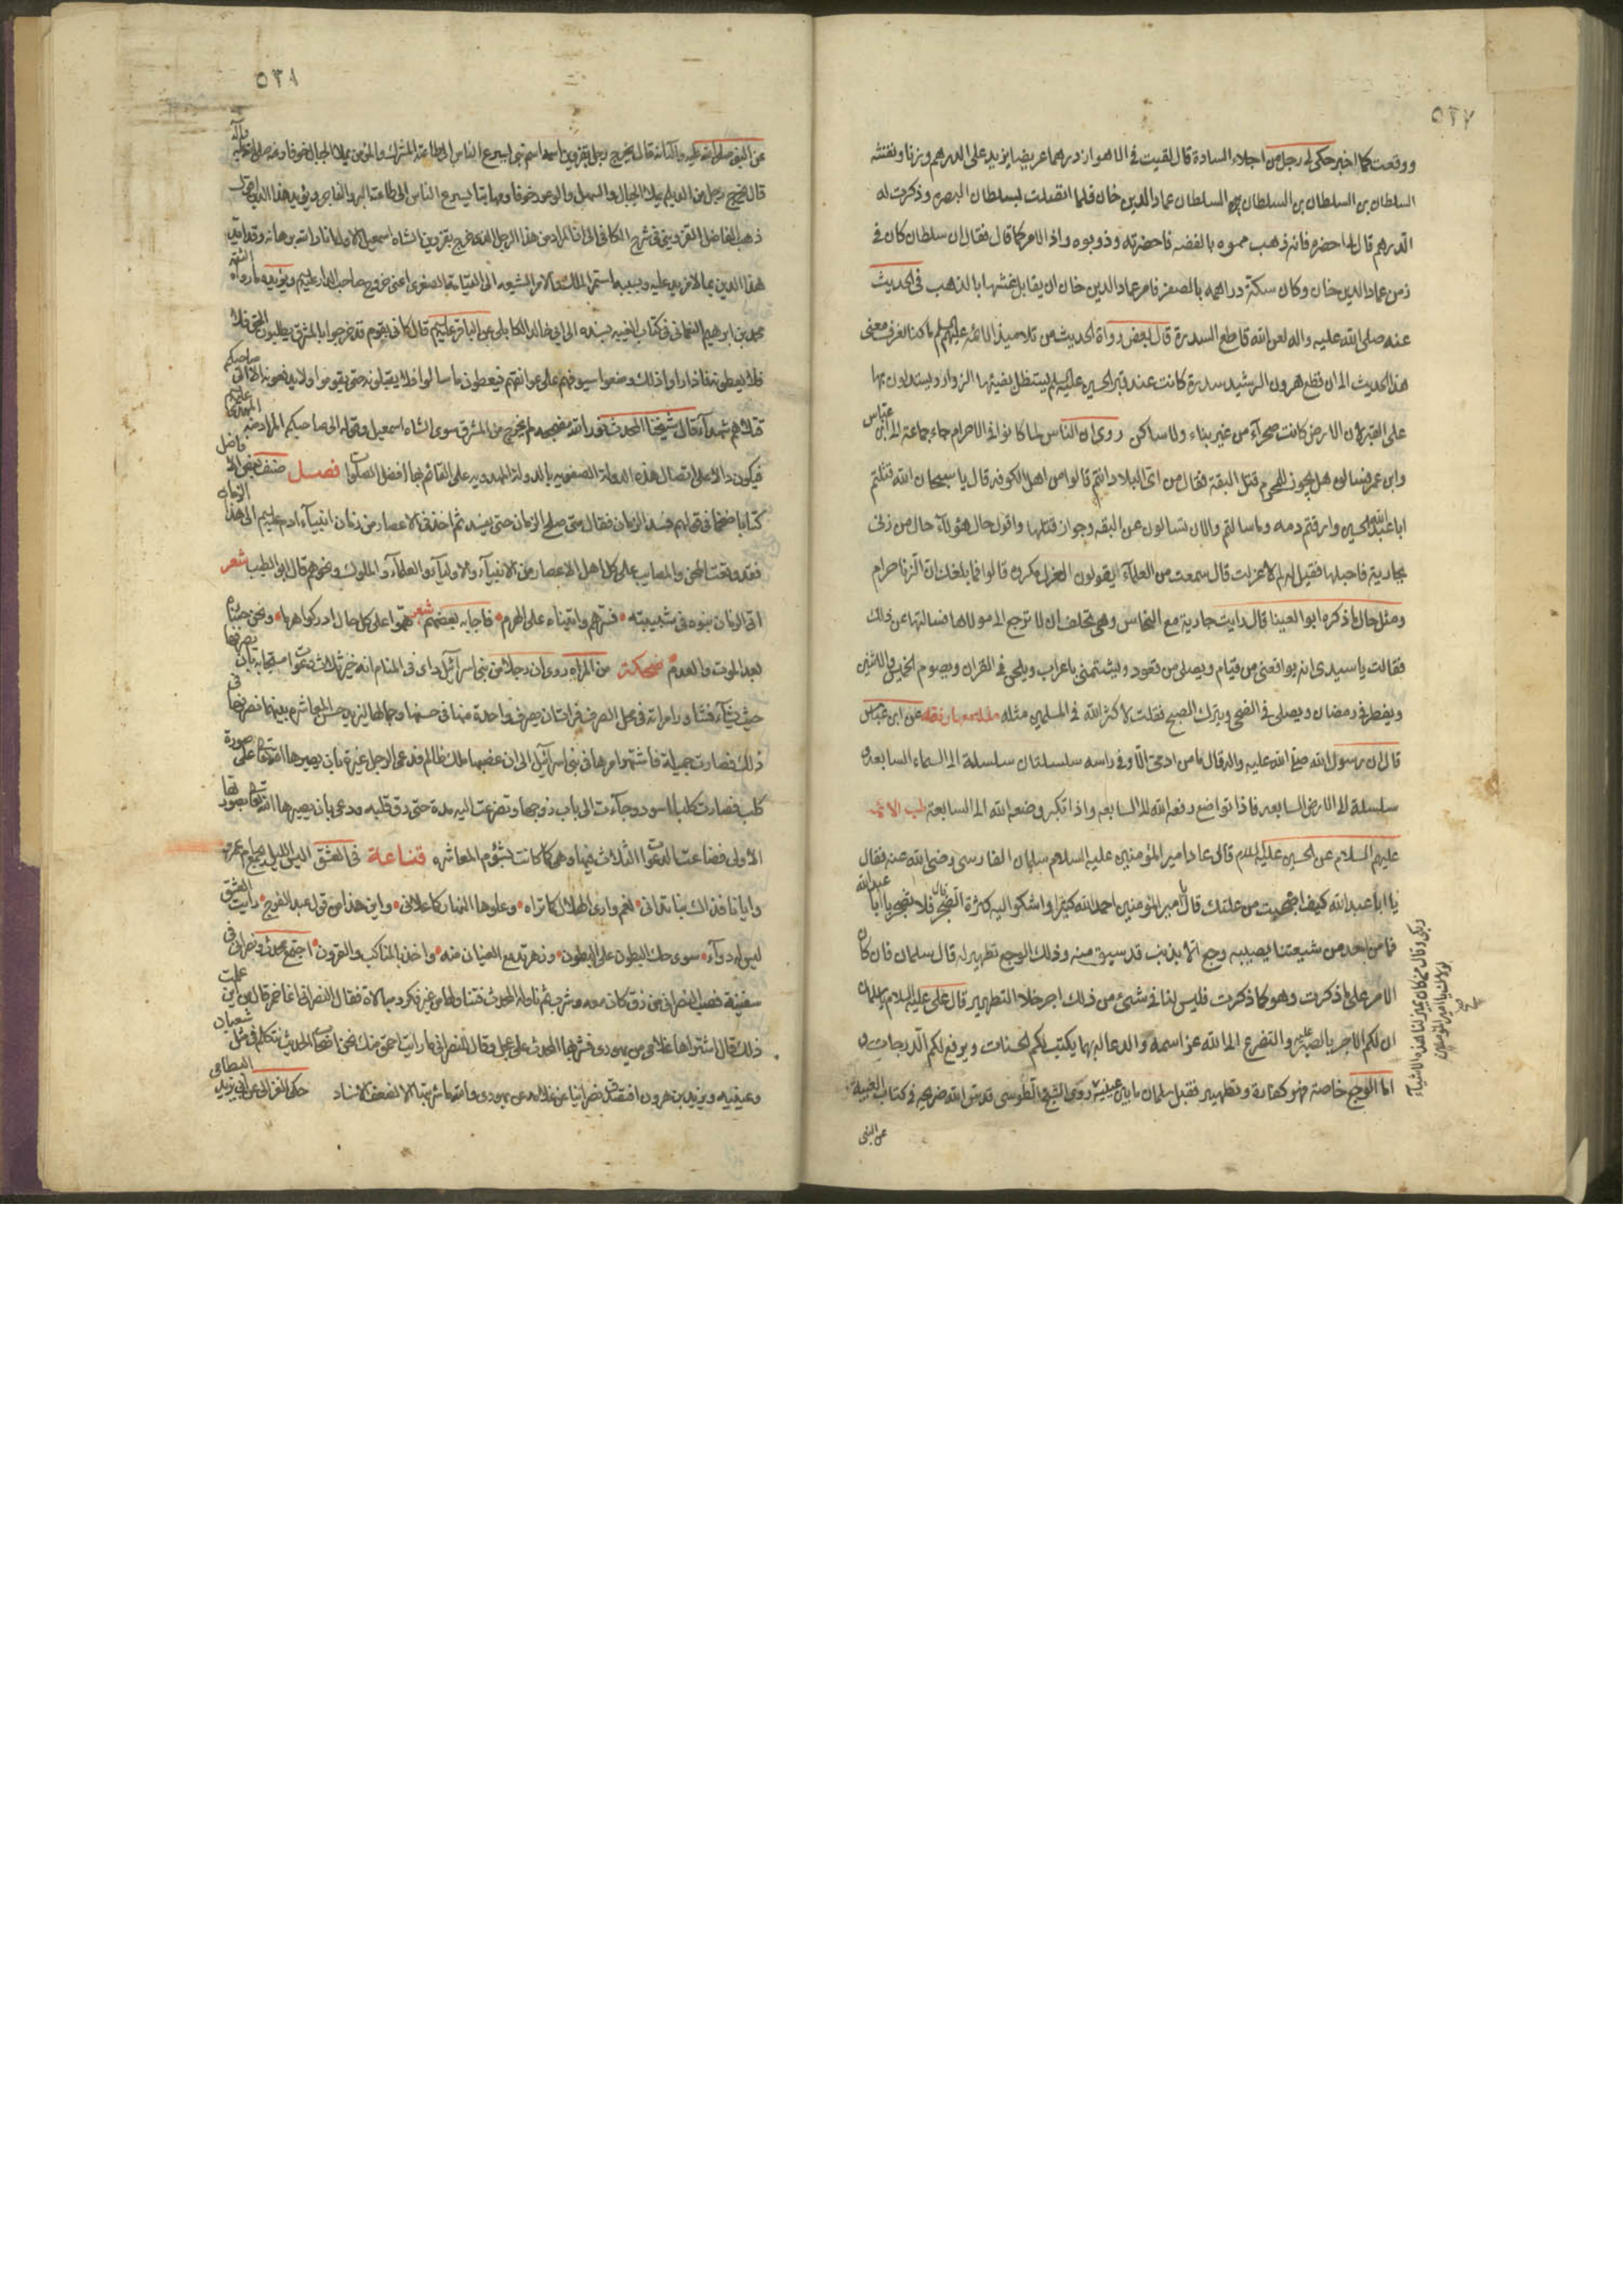 ٥٢٧
ووقعت كما اخبر حكى لى رجل من اجلاء السادة قال لقيت فى الاهواز درهما عريضا يزيد على الدرهم وزنا ونقشه
السلطان بن السلطان بن السلطان بن السلطان عماد الدين خان فلما انتقلت لسلطان البصره وذكرت له
الدرهم قال لى احضره فانه ذهب مموه بالفضه فاحضرته وذوبوه واذا الامر كما قال فقال ان سلطان كان فى
زمن عماد الدين خان وكان سكة دراهمه بالصفر فامر عماد الدين خان ان يقابل غشها بالذهب فى الحديث
عنه صلى الله عليه واله لعن الله قاطع السدرة قال بعض رواة الحديث من تلاميذ الائمه عليهم السلم ما كنا نعرف معنى
هذا الحديث الى ان قطع هرون الرشيد سدرة كانت عند قبر الحسين عليه السلم يستظل بفيئها الزوار ويستدلون بها
على القبر لان الارض كانت صحرآء من غير بناء ولا ساكن روى ان الناس لما كانوا فى الاحرام جاء جماعة الى ابن عباس
وابن عمر فسالوه هل يجوز للمحرم قتل البقة فقال من اى البلاد انتم قالوا من اهل الكوفه قال يا سبحان الله قتلتم
ابا عبد الله الحسين وارقتم دمه وما سالتم والان تسالون عن البقه وجواز قتلها واقول حال هؤلآء حال من زنى
بجارية فاحبلها فقيل له لم لا عزلت قال سمعت من العلمآء يقولون العزل مكروه قالوا فما بلغك ان الزنا حرام
ومثل حال ما ذكره ابو العينا قال رايت جارية مع النخاس وهى تحلف ان لا ترجع الى مولاها فسالتها عن ذلك
فقالت يا سيدى انه يواقعنى من قيام ويصلى من قعود ويشتمنى باعراب ويلحن فى القران ويصوم الخميس والاثنين
ويفطر فى رمضان ويصلى فى الضحى ويترك الصبح فقلت لا كثر الله فى المسلمين مثله عن ابن عباس
قال ان رسول الله صلى الله عليه واله قال ما من ادمى الا وفى راسه سلسلتان سلسلة الى السماء السابعه و
سلسلة الى الارض السابعه فاذا تواضع رفعه الله الى السابعه واذا تكبر وضعه الله الى السابعة طب الائمه
عليهم السلام عن الحسين عليه السلام قال عاد امير المؤمنين عليه السلام سلمان الفارسى رضى الله عنه فقال
يا ابا عبد الله كيف اصبحت من علتك قال يا امير المؤمنين احمد الله كثيرا واشكو اليه كثرة الضجر قال فلا تضجر يا ابا عبد الله
فما من احد من شيعتنا يصيبه وجع الا بذنب قد سبق منه وذلك الوجع تطهير له قال سلمان فان كان
الامر على ما ذكرت وهو كما ذكرت فليس لنا فى شىء من ذلك اجر خلا التطهير قال على عليه السلام يا سلمان
ان لكم الاجر بالصبر عليه والتضرع الى الله عز اسمه والدعاء له بهما يكتب لكم الحسنات ويرفع لكم الدرجات و
اما الوجع خاصة فهو كفارة وتطهير فقبل سلمان ما بين عينيه روى الشيخ الطوسى قدس الله ضريحه فى كتاب الغيبة
عن النبى
وبكى وقال من كان يميز لنا هذه الاشيآء
لولاك يا امير المؤمنين
٥٢٨
عن النبى صلى الله عليه واله انه قال يخرج رجل بقزوين اسمه اسم نبى يسرع الناس الى طاعته المشرك والمؤمن يملا الجبال خوفا
قال يخرج رجل من الديلم يملك الجبال والسهل والوعر خوفا ومهابة يسرع الناس الى طاعته البر والفاجر ويؤيد هذا الدين
ذهب الفاضل القزوينى فى شرح الكافى الى ان المراد من هذا الرجل الذى يخرج بقزوين الشاه اسمعيل الاول انار الله برهانه
هذا الدين بما لا مزيد عليه وبسببه استمر الملك والامر للشيعه الى القيامة الصغرى اعنى خروج صاحب الدار عليه السلم ويؤيده ما رواه الثقه
محمد بن ابرهيم النعمانى فى كتاب الغيبه بسنده الى ابى خالد الكابلى عن الباقر عليه السلم قال كانى بقوم قد خرجوا بالمشرق يطلبون الحق فلا
فلا يعطونه فاذا راوا ذلك وضعوا سيوفهم على عواتقهم فيعطون ما سالوا فلا يقبلونه حتى يقوموا ولا يدفعونها الا الى صاحبكم
قتلاهم شهدآء قال شيخنا المحدث نور الله مضجعه لم يخرج من المشرق سوى الشاه اسمعيل وقوله الى صاحبكم المراد منه المهدى عليه السلم
فيكون دالا على اتصال هذه الدولة الصفويه بالدولة المهدويه على القائم بها افضل الصلوات فصل صنف بعض الافاضل
كتابا ضخما فى قولهم فسد الزمان فقال متى صلح الزمان حتى يفسد ثم اخذ فى الاعصار من زمان انبيآء ادم عليه السلم الى هذا الزمان
فقد وقعت المحن والمصايب على كل اهل الاعصار من الانبيآء والاوليآء والعلمآء والملوك ونحوهم قال ابو الطيب شعر
اتى الزمان بنوه فى شبيبته • فسرهم واتيناه على الهرم • فاجابه بعضهم شعر هموا على كل حال ادركوا هرما • ونحن جئناه
بعد الموت والعدم مضحكة من المراة روى ان رجلا من بنى اسرآئيل راى فى المنام انه خير ثلاث دعوات مستجابة بان يصرفها
حيث يشآء فشاور امراته فى محل الصرف فرات ان يصرف واحدة منها فى حسنها وجمالها ليزيد حسن المعاشره بينهما فصرفها فى
ذلك فصارت جميلة فاشتهر امرها فى بنى اسرآئيل الى ان غصبها ملك ظالم فدعى الرجل غيرة بان يصيرها الله تعالى على صورة
كلب فصارت كلبا اسود وجآءت الى باب زوجها وتضرعت اليه مدة حتى رق قلبه ودعى بان يصيرها الله تعالى بصورتها
الاولى فضاعت الدعوات الثلاث فيها وهى كما كانت بشؤم المعاشره قناعة فى العشق اليس الليل يجمع ام عمرو
وايانا فذاك بنا تدانى • نعم وارى الهلال كما تراه • وعلوها النهار كما علانى • واين هذا من قول عبد الفرج • رايت العشق
ليس له دوآء • سوى حك البطون على البطون • واخذ بالمناكب والقرون • اجتمع محدث ونصرانى فى
سفينة فصب النصرانى من زق كان معه وشرب ثم ناول المحدث فتناولها من غير فكر ومبالاة فقال النصرانى انها خمر قال من اين علمت
ذلك قال اشتراها غلامى من يهودى فشربها المحدث على عجل وقال للنصرانى ما رايت احمق منك نحن اصحاب الحديث نتكلم فى مثل سفيان
وعيينه ويزيد بن هرون افنصدق نصرانيا عن غلامه عن يهودى والله ما شربتها الا لضعف الاسناد حكى الغزالى عن ابى يزيد البسطامى